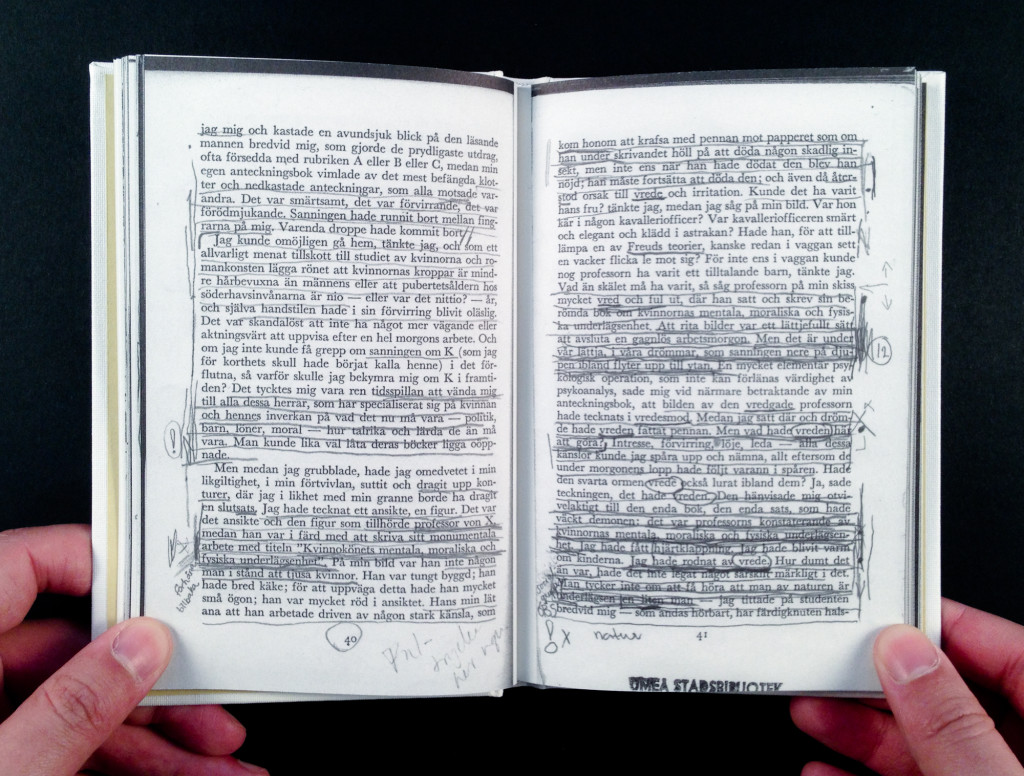 jag mig och kastade en avundsjuk blick på den läsande
mannen bredvid mig, som gjorde de prydligaste utdrag,
ofta försedda med rubriken A eller B eller C, medan min
egen anteckningsbok vimlade av det mest befängda klot-
ter och nedkastade anteckningar, som alla motsade var-
andra. Det var smärtsamt, det var förvirrande, det var
förödmjukande. Sanningen hade runnit bort mellan fing-
rarna på mig. Varenda droppe hade kommit bort.
Jag kunde omöjligen gå hem, tänkte jag, och som ett
allvarligt menat tillskott till studiet av kvinnorna och ro-
mankonsten lägga rönet att kvinnornas kroppar är mind-
re hårbevuxna än männens eller att pubertetsåldern hos
söderhavsinvånarna är nio — eller var det nittio? — år,
och själva handstilen hade i sin förvirring blivit oläslig.
Det var skandalöst att inte ha något mer vägande eller
aktningsvärt att uppvisa efter en hel morgons arbete. Och
om jag inte kunde få grepp om sanningen om K (som jag
för korthets skull hade börjat kalla henne) i det för-
flutna, så varför skulle jag bekymra mig om K i framti-
den? Det tycktes mig vara ren tidsspillan att vända mig
till alla dessa herrar, som har specialiserat sig på kvinnan
och hennes inverkan på vad det nu må vara — politik,
barn, löner, moral — hur talrika och lärda de än må
vara. Man kunde lika väl låta deras böcker ligga oöpp-
nade.
Men medan jag grubblade, hade jag omedvetet i min
likgiltighet, i min förtvivlan, suttit och dragit upp kon-
turer, där jag i likhet med min granne borde ha dragit
en slutsats. Jag hade tecknat ett ansikte, en figur. Det var
det ansikte och den figur som tillhörde professor von X,
medan han var i färd med att skriva sitt monumentala
arbete med titeln "Kvinnokönets mentala, moraliska och
fysiska underlägsenhet". På min bild var han inte någon
man i stånd att tjusa kvinnor. Han var tungt byggd; han
hade bred käke; för att uppväga detta hade han mycket
små ögon; han var mycket röd i ansiktet. Hans min lät
ana att han arbetade driven av någon stark känsla, som
40
kom honom att krafsa med pennan mot papperet som om
han under skrivandet höll på att döda någon skadlig in-
sekt, men inte ens när han hade dödat den blev han
nöjd; han måste fortsätta att döda den; och även då åter-
stod orsak till vrede och irritation. Kunde det ha varit
hans fru? tänkte jag, medan jag såg på min bild. Var hon
kär i någon kavalleriofficer? Var kavalleriofficeren smärt
och elegant och klädd i astrakan? Hade han, för att till-
lämpa en av Freuds teorier, kanske redan i vaggan sett
en vacker flicka le mot sig? För inte ens i vaggan kunde
nog professorn ha varit ett tilltalande barn, tänkte jag.
Vad än skälet må ha varit, så såg professorn på min skiss
mycket vred och ful ut, där han satt och skrev sin be-
römda bok om kvinnornas mentala, moraliska och fysis-
ka underlägsenhet. Att rita bilder var ett lättjefullt sätt
att avsluta en gagnlös arbetsmorgon. Men det är under
vår lättja, i våra drömmar, som sanningen nere på dju-
pen ibland flyter upp till ytan. En mycket elementär psy-
kologisk operation, som inte kan förlänas värdighet av
psykoanalys, sade mig vid närmare betraktande av min
anteckningsbok, att bilden av den vredgade professorn
hade tecknats i vredesmod. Medan jag satt där och dröm-
de hade vreden fattat pennan. Men vad hade vreden här
att göra? Intresse, förvirring, löje, leda — alla dessa
känslor kunde jag spåra upp och nämna, allt eftersom de
under morgonens lopp hade följt varann i spåren. Hade
den svarta ormen vrede också lurat ibland dem? Ja, sade
teckningen, det hade vreden. Den hänvisade mig otvi-
velaktigt till den enda bok, den enda sats, som hade
väckt demonen: det var professorns konstaterande av
kvinnornas mentala, moraliska och fysiska underlägsen-
het. Jag hade fått hjärtklappning. Jag hade blivit varm
om kinderna. Jag hade rodnat av vrede. Hur dumt det
än var, hade det inte legat något särskilt märkligt i det.
Man tycker inte om att få höra att man av naturen är
underlägsen en liten man — jag tittade på studenten
bredvid mig — som andas hörbart, har färdigknuten hals-
12
natur
41
UMEÅ STADSBIBLIOTEK